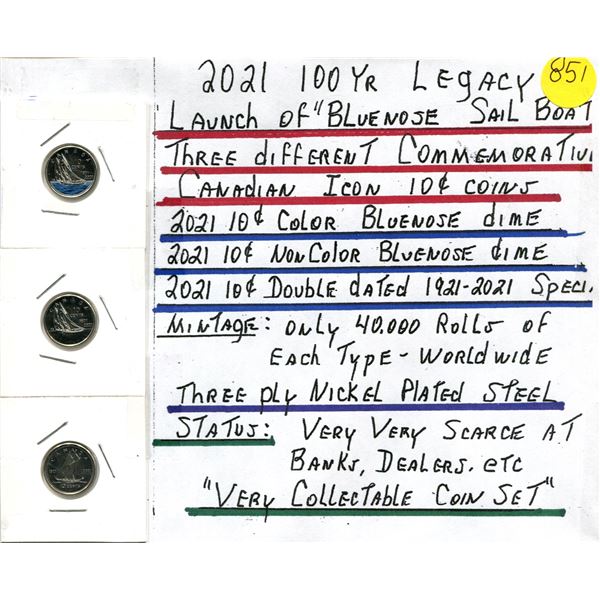 2021 100 YR LEGACY
851
LAUNCH OF "BLUENOSE SAIL BOAT
THREE DIFFERENT COMMEMORATIV
CANADIAN ICON 10¢ COINS
2021 10¢ COLOR BLUENOSE DIME
2021 10¢ NONCOLOR BLUENOSE DIME
2021 10¢ DOUBLE DATED 1921-2021 SPECI.
MINTAGE: ONLY 40.000 ROLLS OF
EACH TYPE - WORLDWIDE
THREE PLY NICKEL PLATED STEEL
STATUS: VERY VERY SCARCE AT
BANKS, DEALERS. ETC
"VERY COLLECTABLE COIN SET"
CANADA